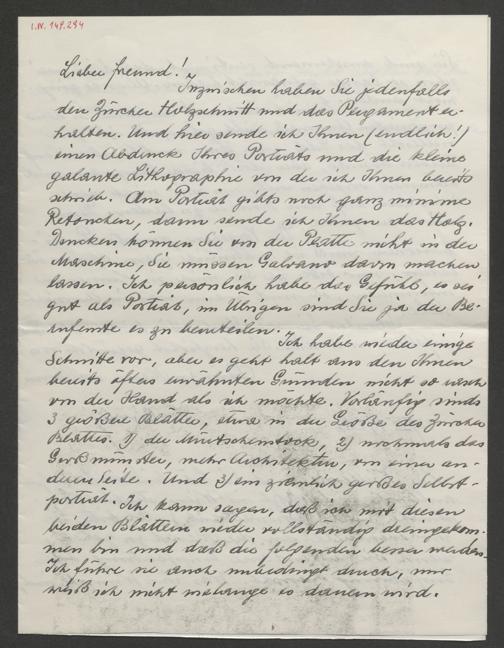 I.N. 149.294
Lieber Freund!
Inzwischen haben Sie jedenfalls
den Zürcher Holzschnitt und das Pergament er-
halten. Und hier sende ich Ihnen (endlich!)
einen Abdruck Ihres Porträts und die kleine
galante Lithographie von der ich Ihnen bereits
schrieb. Am Porträt gibts noch ganz minime
Retouchen, dann sende ich Ihnen das Holz.
Drucken können Sie von der Platte nicht in der
Maschine, Sie müssen Galvano davon machen
lassen. Ich persönlich habe das Gefühl, es sei
gut als Porträt, im Übrigen sind Sie ja der Be-
rufenste es zu beurteilen.
Ich habe wieder einige
Schnitte vor, aber es geht halt aus den Ihnen
bereits öfters erwähnten Gründen nicht so rasch
von der Hand als ich möchte. Vorläufig sinds
3 größere Blätter, etwa in der Größe des Zürcher
Blattes. 1) der 2) nochmals das
Großmünster, mehr Architektur, von einer an-
deren Seite. Und 3) ein ziemlich großes Selbst-
porträt. Ich kann sagen, daß ich mit diesen
beiden Blättern wieder vollständig dreingekom-
men bin und daß die folgenden besser werden.
Ich führe sie auch unbedingt durch, nur
weiß ich nicht wie lange es dauern wird.